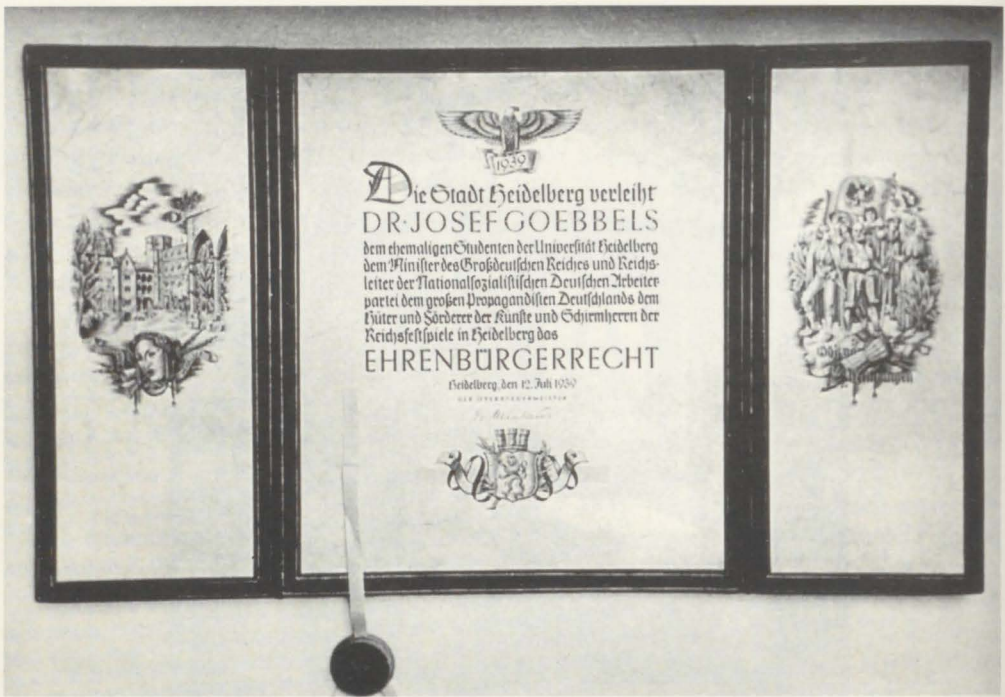 1939
Die Stadt Heidelberg verleiht
DR·JOSEF GOEBBELS
dem ehemaligen Studenten der Universität Heidelberg
dem Minister des Großdeutschen Reiches und Reichs-
leiter der Nationalsozialistischen Deutschen Arbeiter-
partei dem großen Propagandisten Deutschlands dem
Hüter und Förderer der Künste und Schirmherrn der
Reichsfestspiele in Heidelberg das
EHRENBÜRGERRECHT
Heidelberg, den 12. Juli 1939
DER OBERBÜRGERMEISTER